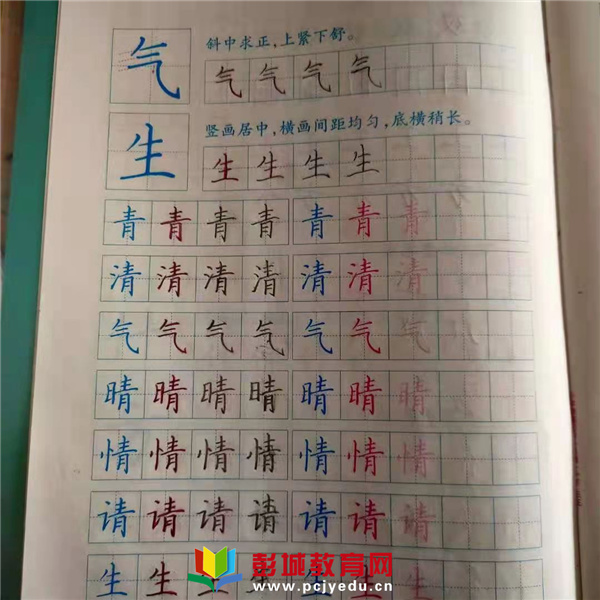 气
斜中求正，上紧下舒。
气 气 气 气
生
竖画居中，横画间距均匀，底横稍长。
生 生 生 生
青 青 青 青 青 青 青
清 清 清 清 清 清 清
气 气 气 气 气 气 气
晴 晴 晴 晴 晴 晴 晴
情 情 情 情 情 情 情
请 请 请 请 请 请 请
生 生 生 生 生 生 生
彭城教育网
www.pcjyedu.cn